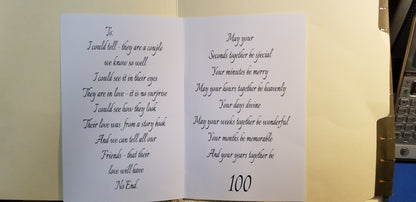 To:
I could tell - they are a couple
we know so well
I could see it in their eyes
They are in love - it is no surprise
I could see how they look
Their love was, from a story book
And we can tell all our
Friends - that their
love will have
No End.
May your
Seconds together be special
Your minutes be merry
May your hours together be heavenly
Your days divine
May your weeks together be wonderful
Your months be memorable
And your years together be
100